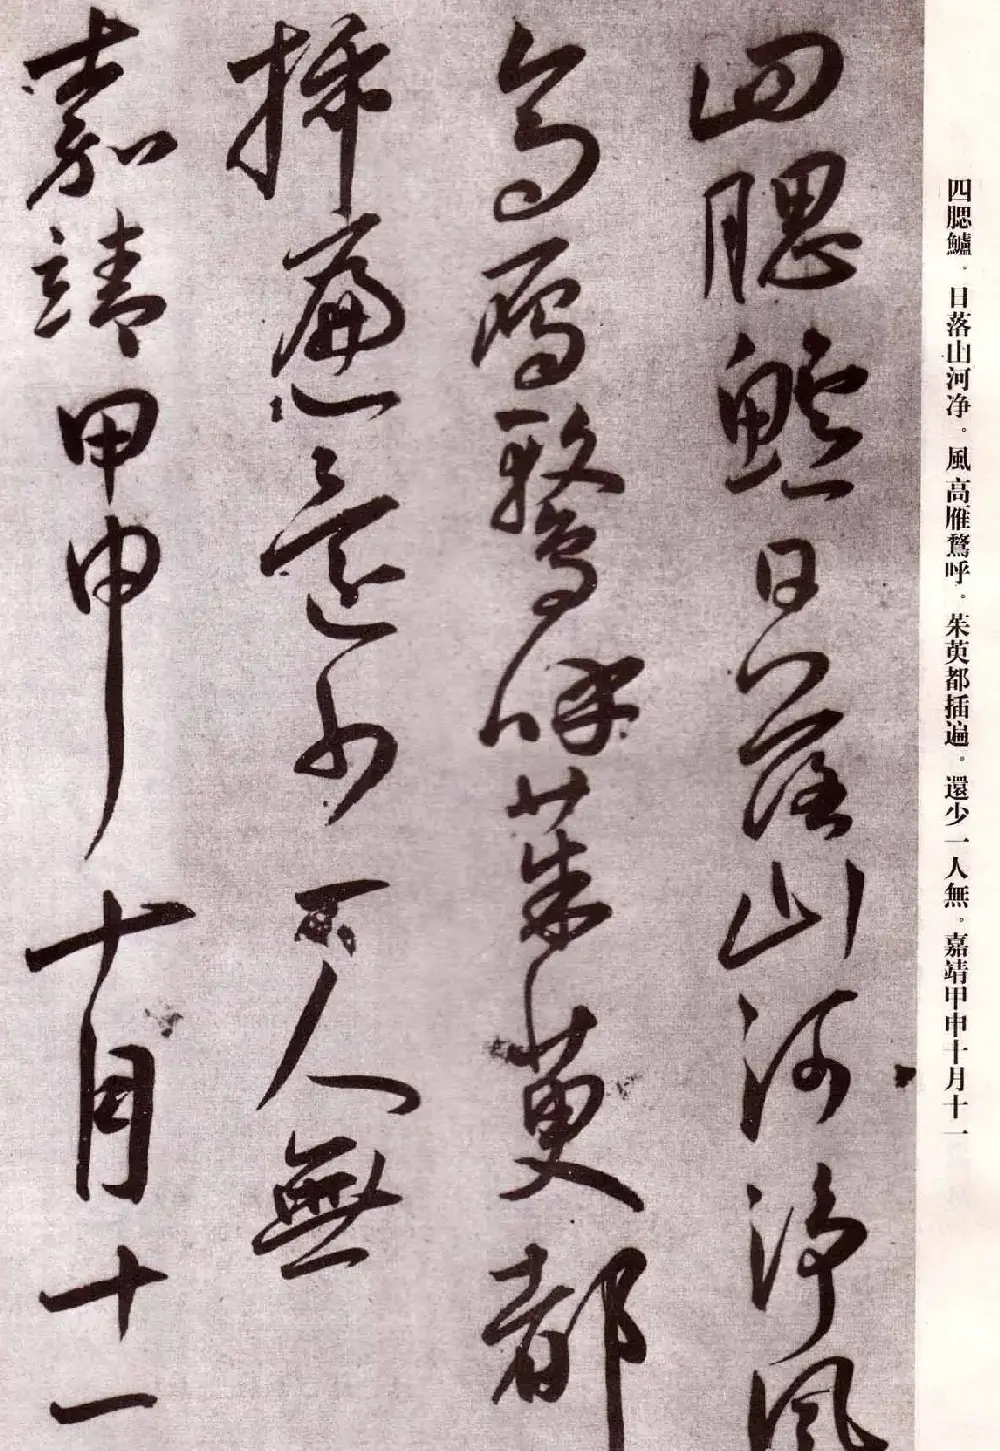 四腮鱸。日落山河净。風高雁鶩呼。茱萸都插遍。還少一人無。嘉靖甲申十月十一
四腮鱸日落山河净風
高雁鶩呼茱萸都
插遍還少一人無
嘉靖甲申十月十一